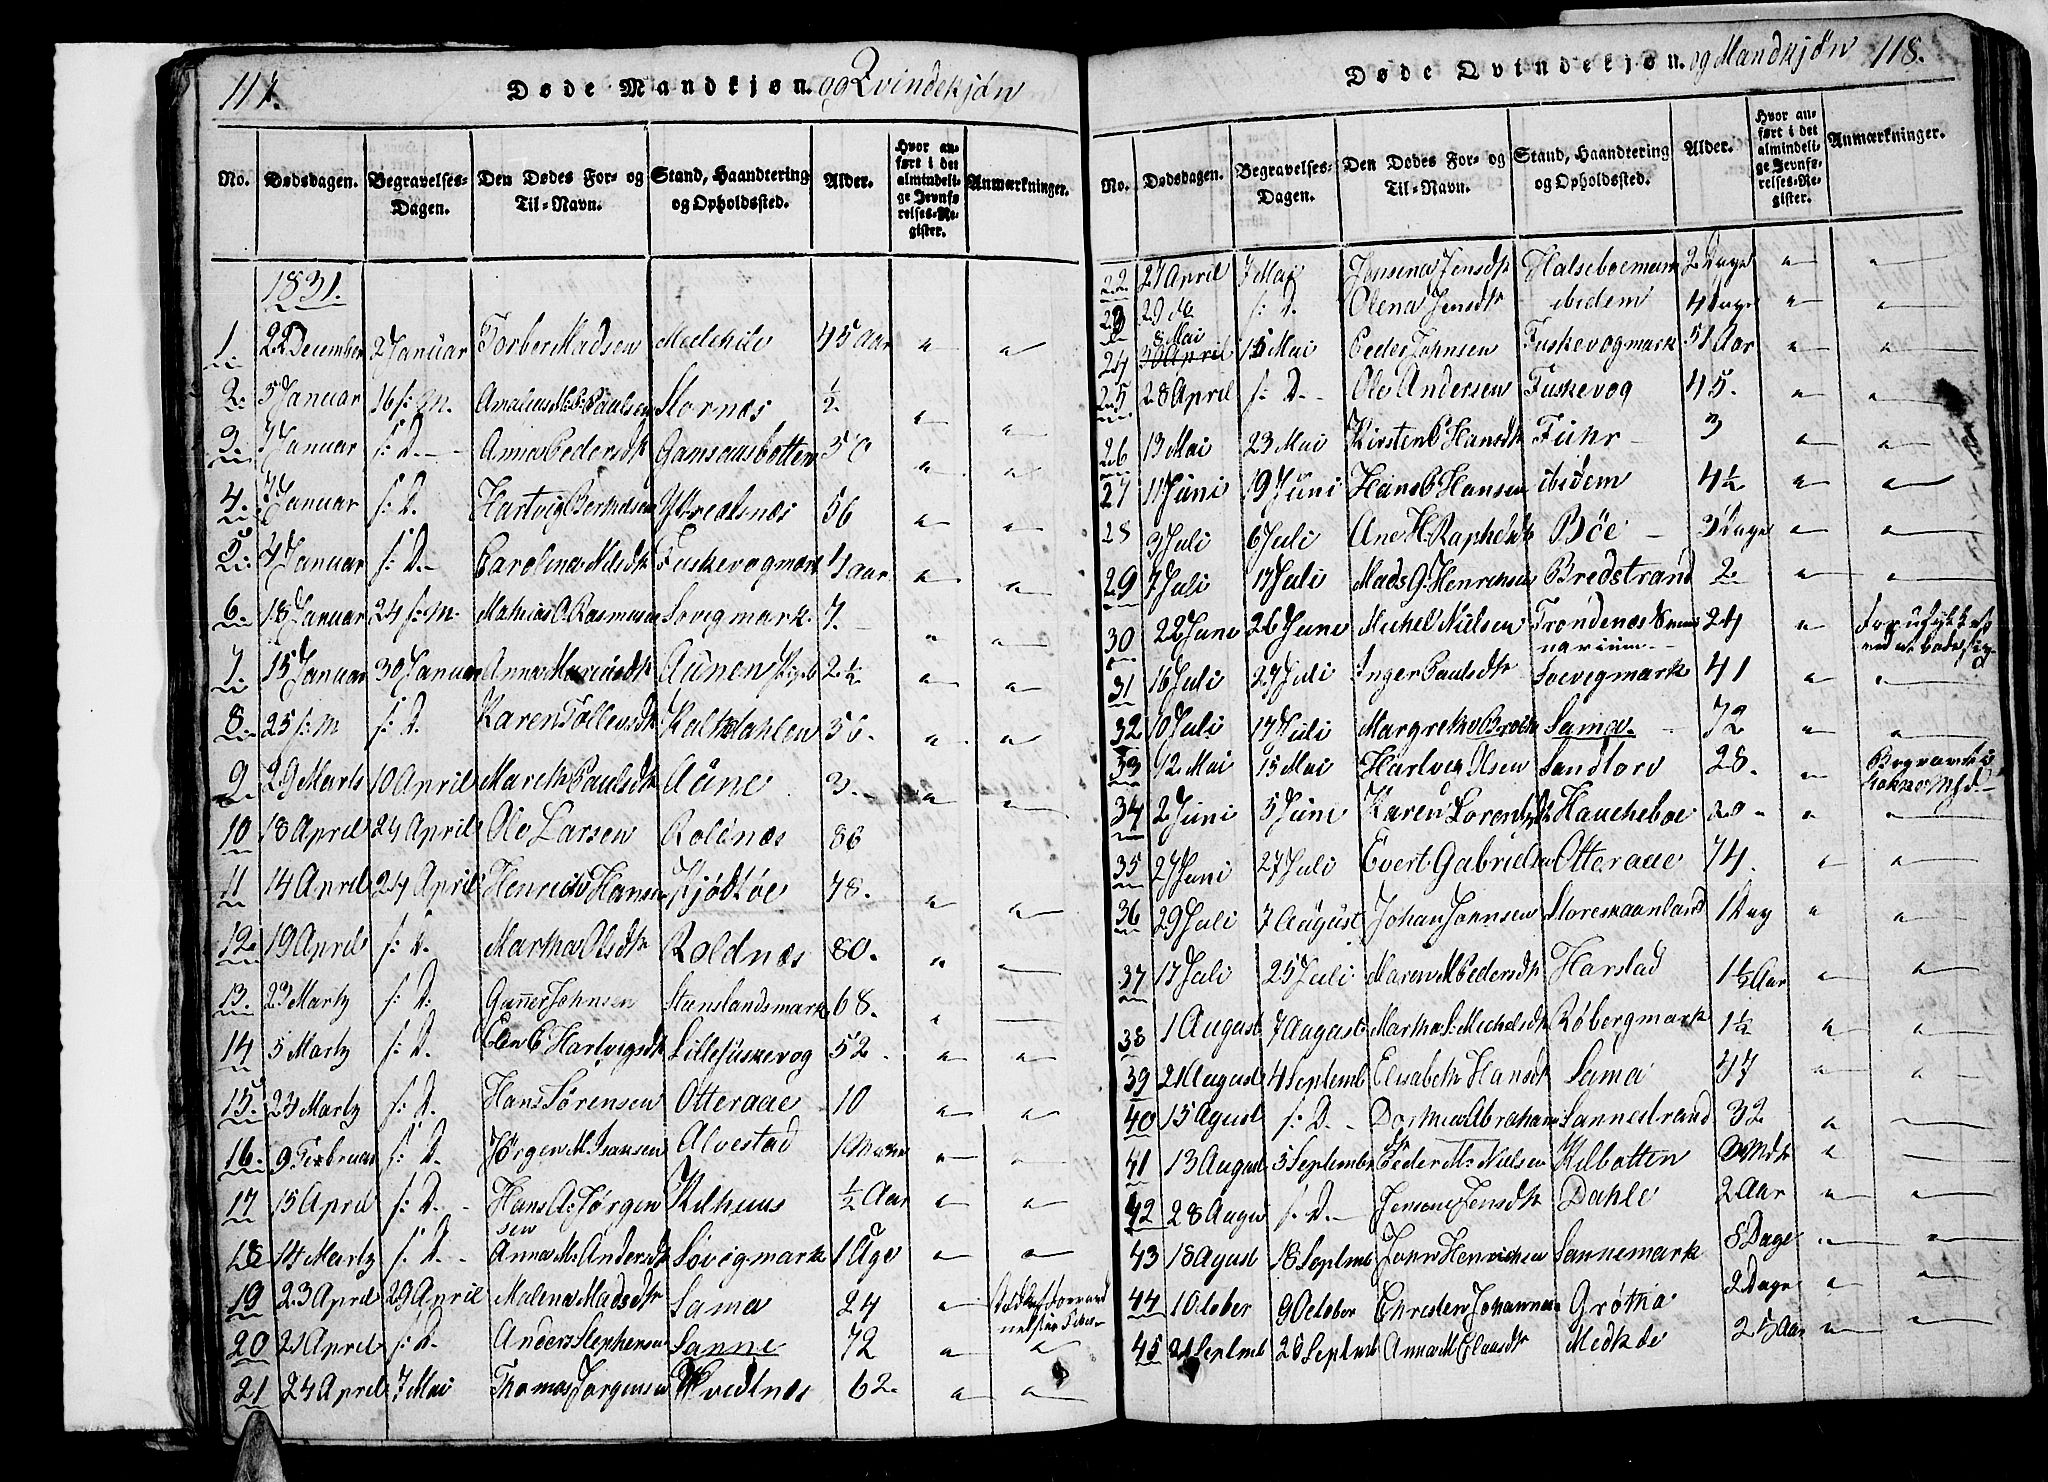 117.
Døde Mandkjøn. og Qvindekjøn
No. Dødsdagen. Begravelses-Dagen. Den Dødes For- og Til-Navn. Stand, Haandtering og Opholdssted. Alder. Hvor anført i det almindelige Jevnførelses-Register. Anmærkninger.
1831.
1. 22 December 2 Januar Torber Madsen 45 Aar " "
2. 5 Januar 16 s: M. Stornæs ½. " "
3. 7 Januar s: D. Anna Pedersdtr Gamsausbotten 50 " "
4. 7 Januar s: D. Hartvig 56 " "
5. 4 Januar s: D. Carolina Fuskevogmark 4 aar " "
6. 18 Januar 24 s: M. Mathias O. Rasmusen Sovigmark. 7. " "
7. 15 Januar 30 Januar Anna Aunen 2½ " "
8. 25 s: M s: D. Karen Tollevsdtr Kalkdahlen 56. " "
9. 29 Marts 10 April Mareth Paulsdtr Aune 3. " "
10 18 April 24 April Ole Larsen Roldnæs 86
11 14 April 24 April Henrik Hansen Kjødtøe 78. " "
12. 19 April s: D. Martha Olsdtr Roldnæs 80. " "
13. 23 Martz s: D. Gunner Johnsen Stunslandsmark 68. " "
14 5 Martz s: D. Elen E Hartvigsdtr Lillefuskevog 52. " "
15. 23 Martz s: D. Hans Sørensen Otteraae 10 " "
16. 9 Februar s: D. Jørgen M. Isansen Alvestad 1 " "
17 15 April s: D. Hans A: Jørgensen Kilhuus ½ Aar " "
18 14 Martz s: D. Anna M. Andersdtr Søvigmark 1 Uge " "
19 23 April 29 April Malena Madsdtr Sama 24 "
20 21 April s: D. Anders Stephensen Sanne 72 " "
21 24 April 7 Mai Thomas Jørgensen Hvedtnæs 62. " "
Døde Qvindekjøn. og Mandkjøn 118.
No. Dødsdagen. Begravelses-Dagen. Den Dødes For- og Til-Navn. Stand, Haandtering og Opholdssted. Alder. Hvor anført i det almindelige Jevnførelses-Register. Anmærkninger.
22 27 April 7 Mai Jensdtr 2 Dage " "
23 29 do s: D. Olena Jensdtr ibidem 4 Dage " "
24 8 Mai 30 April 15 Mai Peder Johnsen Fuskevogmark 51 Aar " "
25 28 April s: D. Ole Andersen Fuskevog 45. " "
26 13 Mai 23 Mai Kirsten P Hansdtr Fuhr 3 " "
27 11 Juni 19 Juni Hans P Hansen ibidem 4½ " "
28 3 Juli 6 Juli Ane H. Böe 3 Dage " "
29 7 Juli 17 Juli Mads G. Henrichsen Bredstrand 2. " "
30 22 Juni 26 Juni Michel Nielsen Trondenæs 24 "
31 16 Juli 24 Juli Inger Paulsdtr Soevigmark 41 " "
32 10 Juli 17 Juli Margrethe Sama. 72 " "
33 12 Mai 15 Mai Hartvig Olsen Sandtorv 28. "
34 2 Juni 5 Juni Karen Haucheboe " "
35 27 Juni 27 Juli Evert Gabrielsen Otteraae 74. " "
36 29 Juli 7 August Johan Johnsen Storeskaanland 1 Dag " "
37 17 Juli 25 Juli Maren M Pedersdtr Harstad 1½ Aar " "
38 1 August 7 August Martha S: Michelsdtr Røbergmark 1½ " "
39 21 August 4 Septemb Elisabeth Hansdtr Sama 47 " "
40 15 Agust s: D. Sannestrand 32. " "
41 13 August 5 Septembr Peder M: Nielsen Kilbotten "
42 28 Augus s: D. Jensdtr Dahle 2 Aar " "
43 18 Agust 18 Septmb John Henrichsen Sannemark 8 Dage " "
44 1 October 9 October Christen Grøtha 2 Dage " "
45 21 Septmb 26 Septmb Anna M Medkile 25 Aar " "